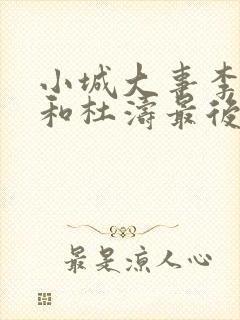 小城大喜李
和杜濤最後
最是涼人心